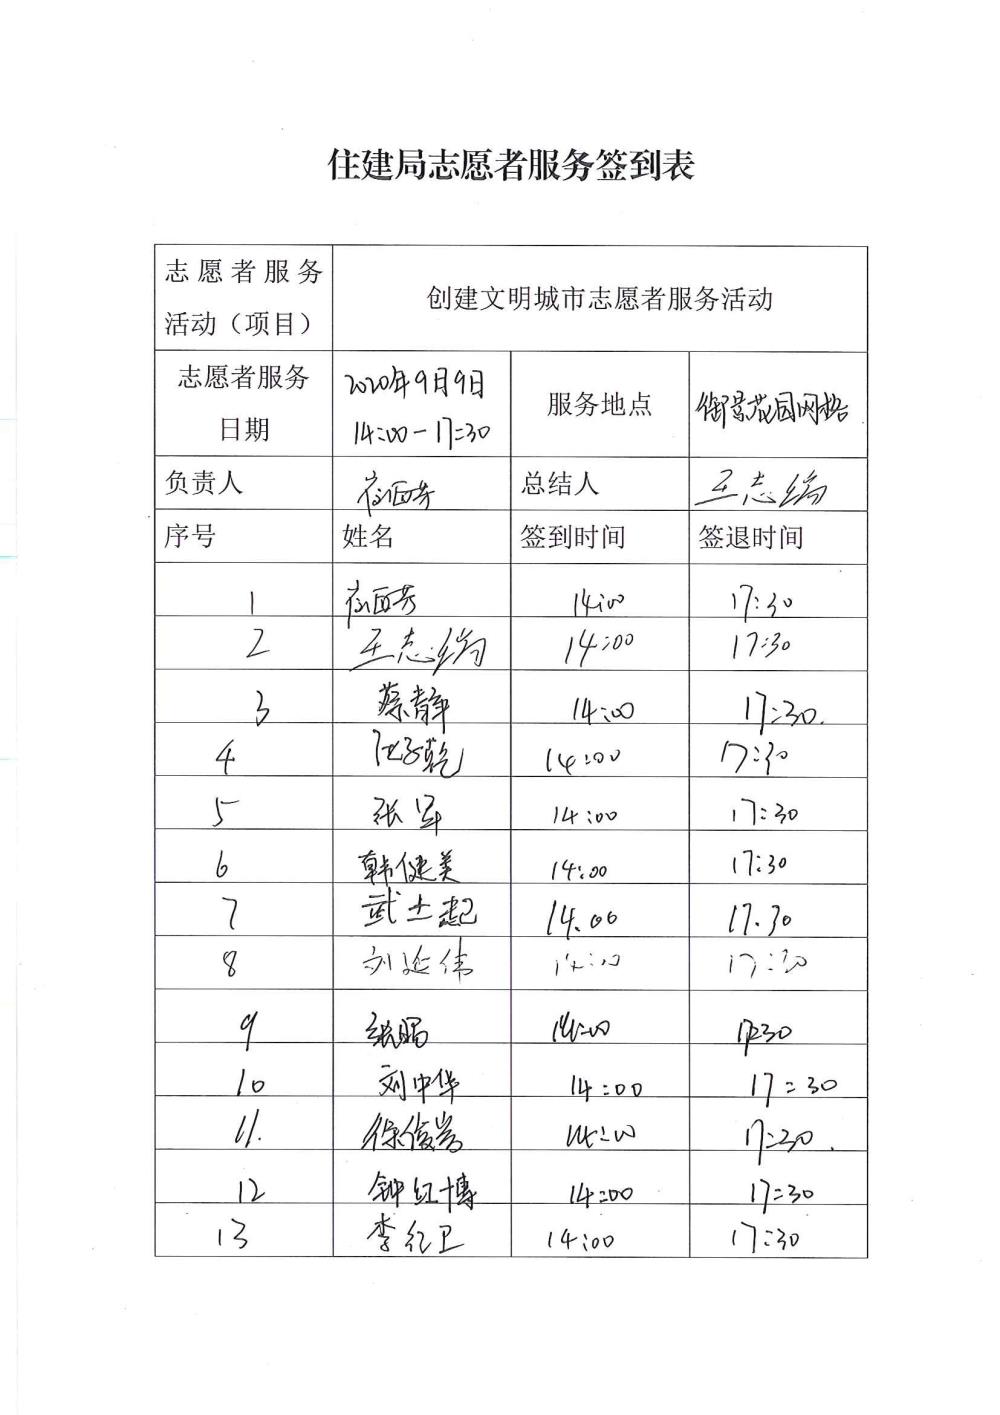 住建局志愿者服务签到表
志愿者服务
活动（项目）
创建文明城市志愿者服务活动
志愿者服务
日期
2020年9月9日
14:00-17:30
服务地点
御景花园网格
负责人
总结人
序号 姓名 签到时间 签退时间
1 14:00 17:30
2 14:00 17:30
3 蔡静 14:00 17:30.
4 14:00 17:30
5 张军 14:00 17:30
6 韩健美 14:00 17:30
7 武士起 14.00 17.30
8 刘延伟 14:00 17:30
9 14:00 17:30
10 刘中华 14:00 17:30
11. 14:00 17:30.
12 钟红博 14:00 17:30
13 李红卫 14:00 17:30